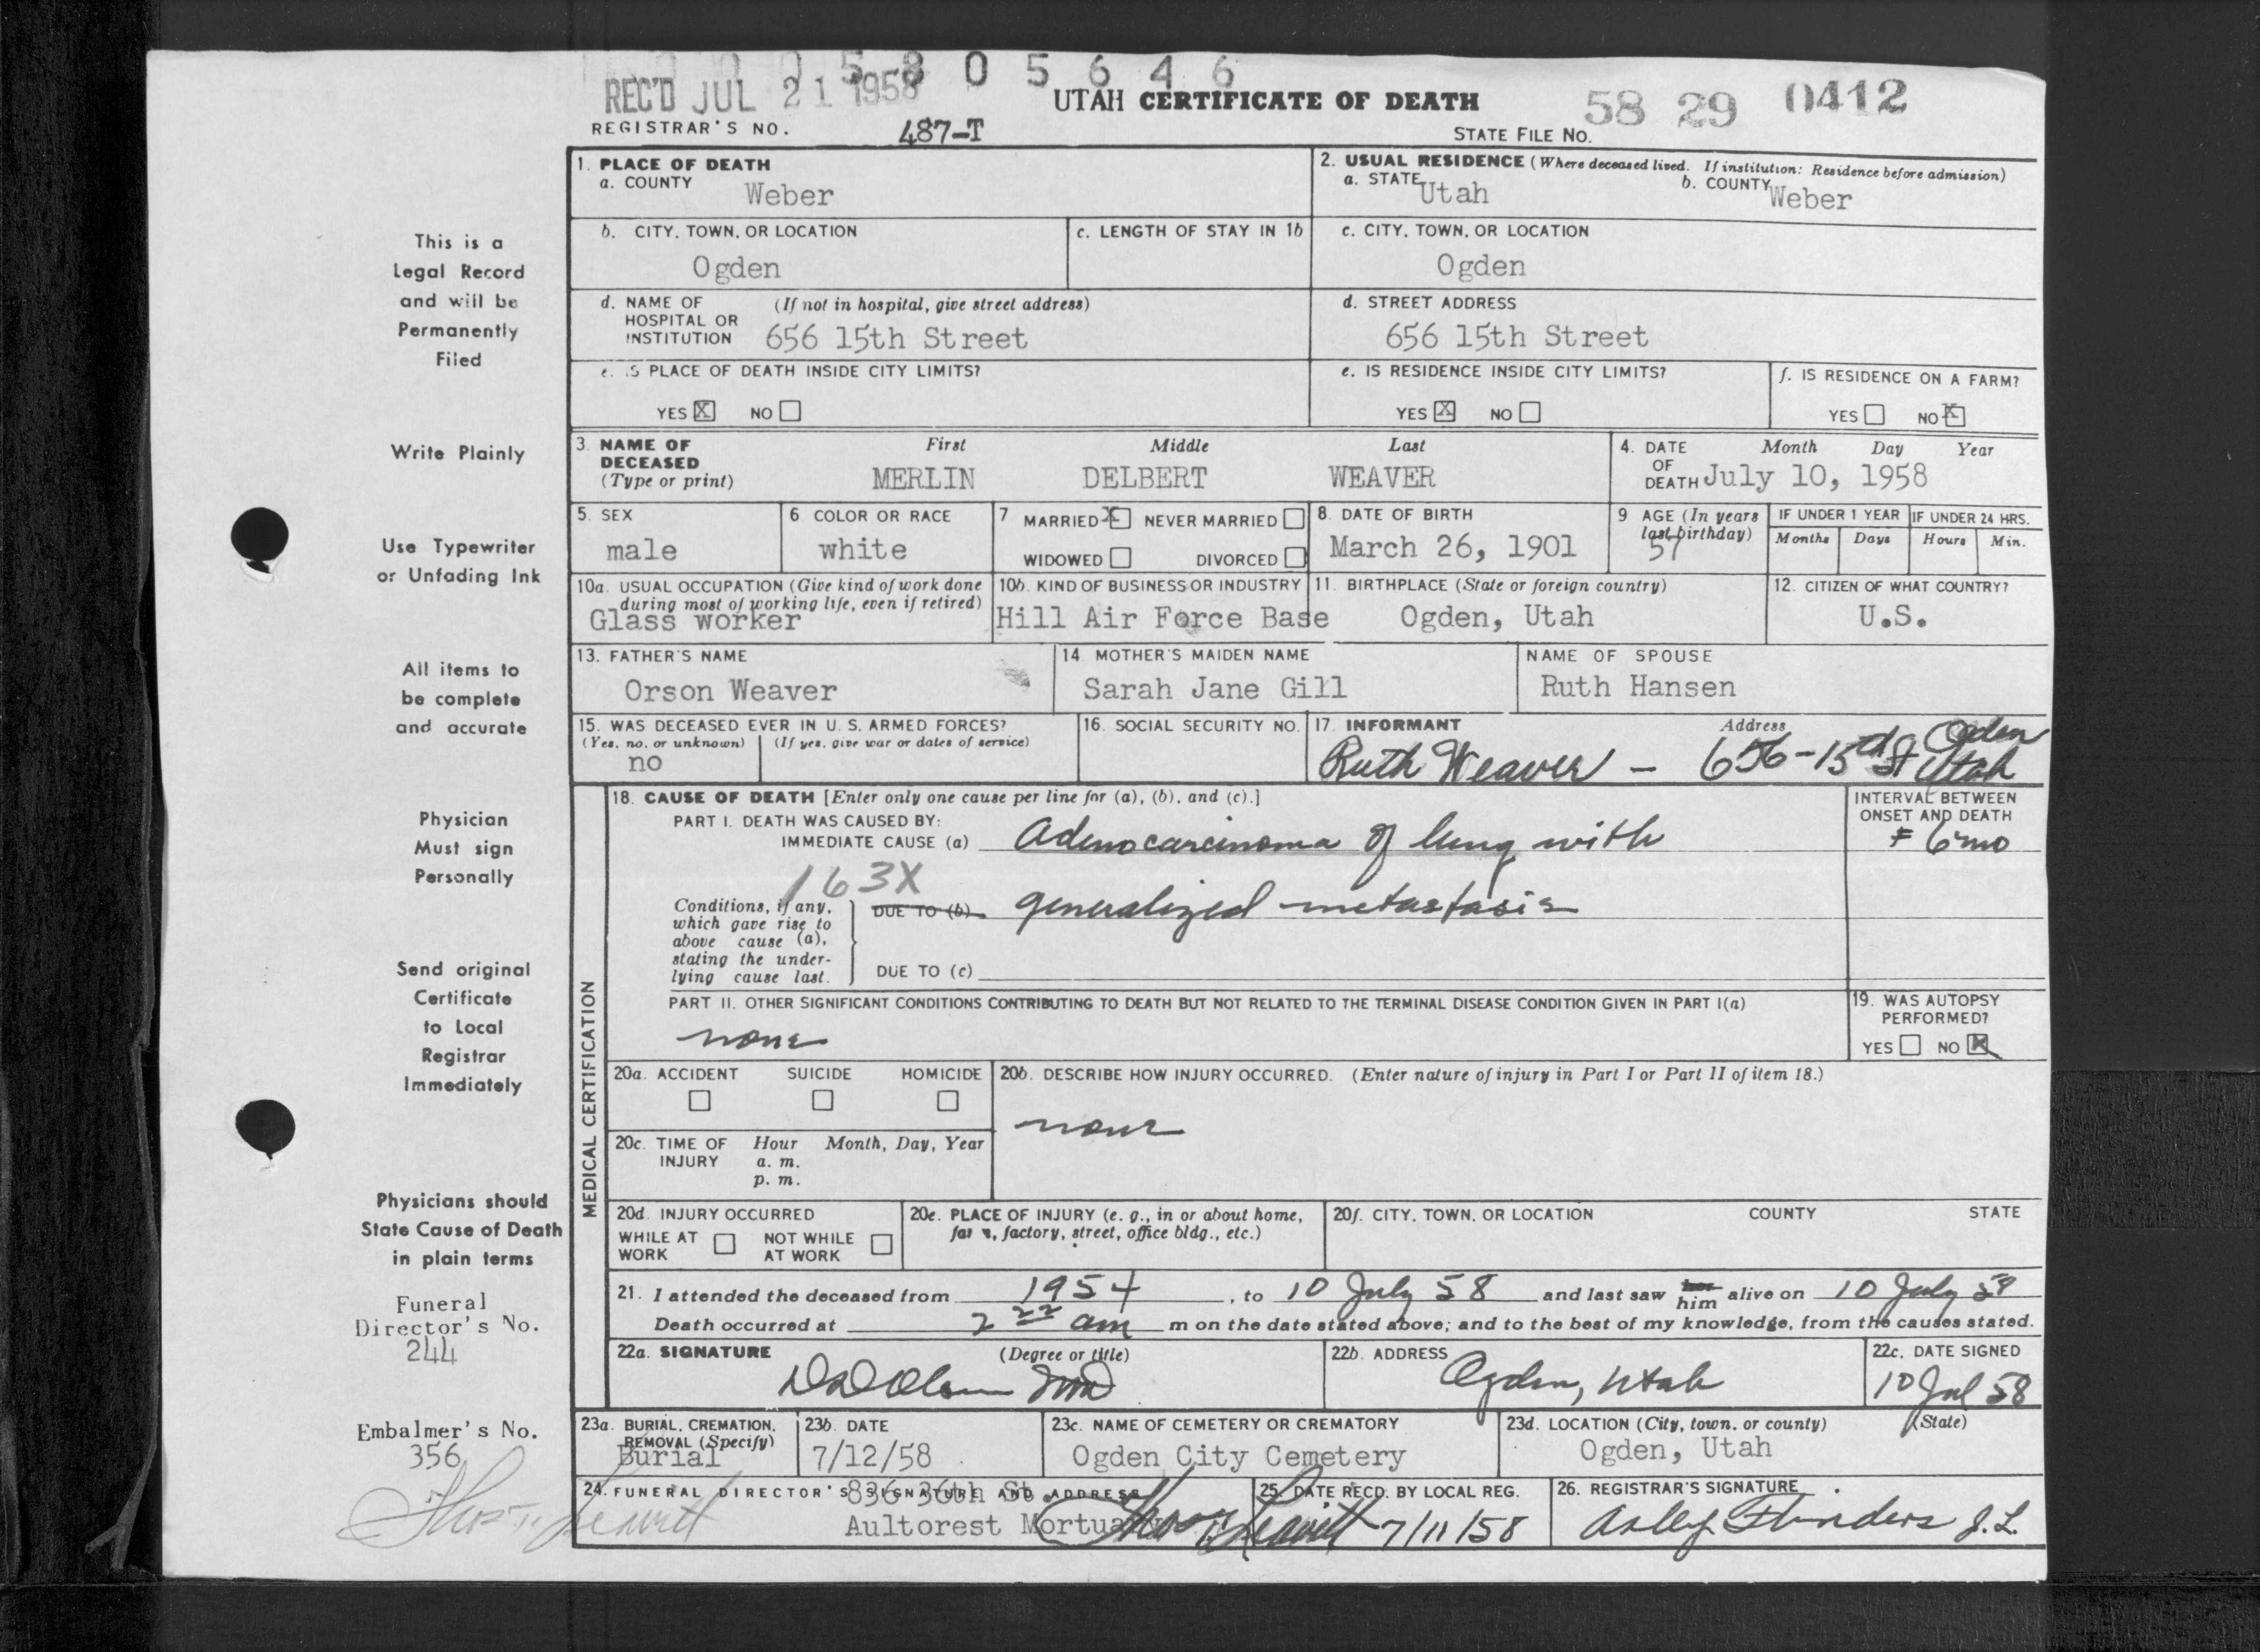 0 5 8 0 5 6 4 6
REC'D JUL 21 1958
UTAH CERTIFICATE OF DEATH
58 29 0412
REGISTRAR'S NO. 487-T
STATE FILE No.
1. PLACE OF DEATH
a. COUNTY Weber
2. USUAL RESIDENCE (Where deceased lived. If institution: Residence before admission)
a. STATE Utah b. COUNTY Weber
b. CITY, TOWN, OR LOCATION
Ogden
c. LENGTH OF STAY IN 1b
c. CITY, TOWN, OR LOCATION
Ogden
d. NAME OF HOSPITAL OR INSTITUTION (If not in hospital, give street address)
656 15th Street
d. STREET ADDRESS
656 15th Street
e. IS PLACE OF DEATH INSIDE CITY LIMITS?
YES X NO
e. IS RESIDENCE INSIDE CITY LIMITS?
YES X NO
f. IS RESIDENCE ON A FARM?
YES NO X
3. NAME OF DECEASED (Type or print)
First Middle Last
MERLIN DELBERT WEAVER
4. DATE OF DEATH Month Day Year
July 10, 1958
5. SEX
male
6 COLOR OR RACE
white
7 MARRIED X NEVER MARRIED
WIDOWED DIVORCED
8. DATE OF BIRTH
March 26, 1901
9 AGE (In years last birthday)
57
IF UNDER 1 YEAR
Months Days
IF UNDER 24 HRS.
Hours Min.
10a. USUAL OCCUPATION (Give kind of work done during most of working life, even if retired)
Glass worker
10b. KIND OF BUSINESS OR INDUSTRY
Hill Air Force Base
11. BIRTHPLACE (State or foreign country)
Ogden, Utah
12. CITIZEN OF WHAT COUNTRY?
U.S.
13. FATHER'S NAME
Orson Weaver
14. MOTHER'S MAIDEN NAME
Sarah Jane Gill
NAME OF SPOUSE
Ruth Hansen
15. WAS DECEASED EVER IN U. S. ARMED FORCES?
(Yes, no. or unknown) (If yes, give war or dates of service)
no
16. SOCIAL SECURITY NO.
17. INFORMANT Address
Ruth Weaver - 656-15th St Ogden Utah
MEDICAL CERTIFICATION
18. CAUSE OF DEATH [Enter only one cause per line for (a), (b), and (c).]
INTERVAL BETWEEN ONSET AND DEATH
PART I. DEATH WAS CAUSED BY:
IMMEDIATE CAUSE (a) Adenocarcinoma of lung with
6 mo
163X
Conditions, if any, which gave rise to above cause (a), stating the underlying cause last.
DUE TO (b) generalized metastasis
DUE TO (c)
PART II. OTHER SIGNIFICANT CONDITIONS CONTRIBUTING TO DEATH BUT NOT RELATED TO THE TERMINAL DISEASE CONDITION GIVEN IN PART I(a)
none
19. WAS AUTOPSY PERFORMED?
YES NO X
20a. ACCIDENT SUICIDE HOMICIDE
20b. DESCRIBE HOW INJURY OCCURRED. (Enter nature of injury in Part I or Part II of item 18.)
none
20c. TIME OF INJURY Hour Month, Day, Year
a. m.
p. m.
20d. INJURY OCCURRED
WHILE AT WORK NOT WHILE AT WORK
20e. PLACE OF INJURY (e. g., in or about home, farm, factory, street, office bldg., etc.)
20f. CITY, TOWN, OR LOCATION COUNTY STATE
21. I attended the deceased from 1954, to 10 July 58 and last saw her him alive on 10 July 58
Death occurred at 2 22 am m on the date stated above; and to the best of my knowledge, from the causes stated.
22a. SIGNATURE (Degree or title)
Olsen MD
22b. ADDRESS
Ogden, Utah
22c. DATE SIGNED
10 Jul 58
23a. BURIAL, CREMATION, REMOVAL (Specify)
Burial
23b. DATE
7/12/58
23c. NAME OF CEMETERY OR CREMATORY
Ogden City Cemetery
23d. LOCATION (City, town, or county) (State)
Ogden, Utah
24. FUNERAL DIRECTOR'S SIGNATURE AND ADDRESS
836 36th St.
Aultorest Mortuary
25. DATE RECD. BY LOCAL REG.
7/11/58
26. REGISTRAR'S SIGNATURE
Flinders J.L.
This is a
Legal Record
and will be
Permanently
Filed
Write Plainly
Use Typewriter
or Unfading Ink
All items to
be complete
and accurate
Physician
Must sign
Personally
Send original
Certificate
to Local
Registrar
Immediately
Physicians should
State Cause of Death
in plain terms
Funeral
Director's No.
244
Embalmer's No.
356
Leavitt